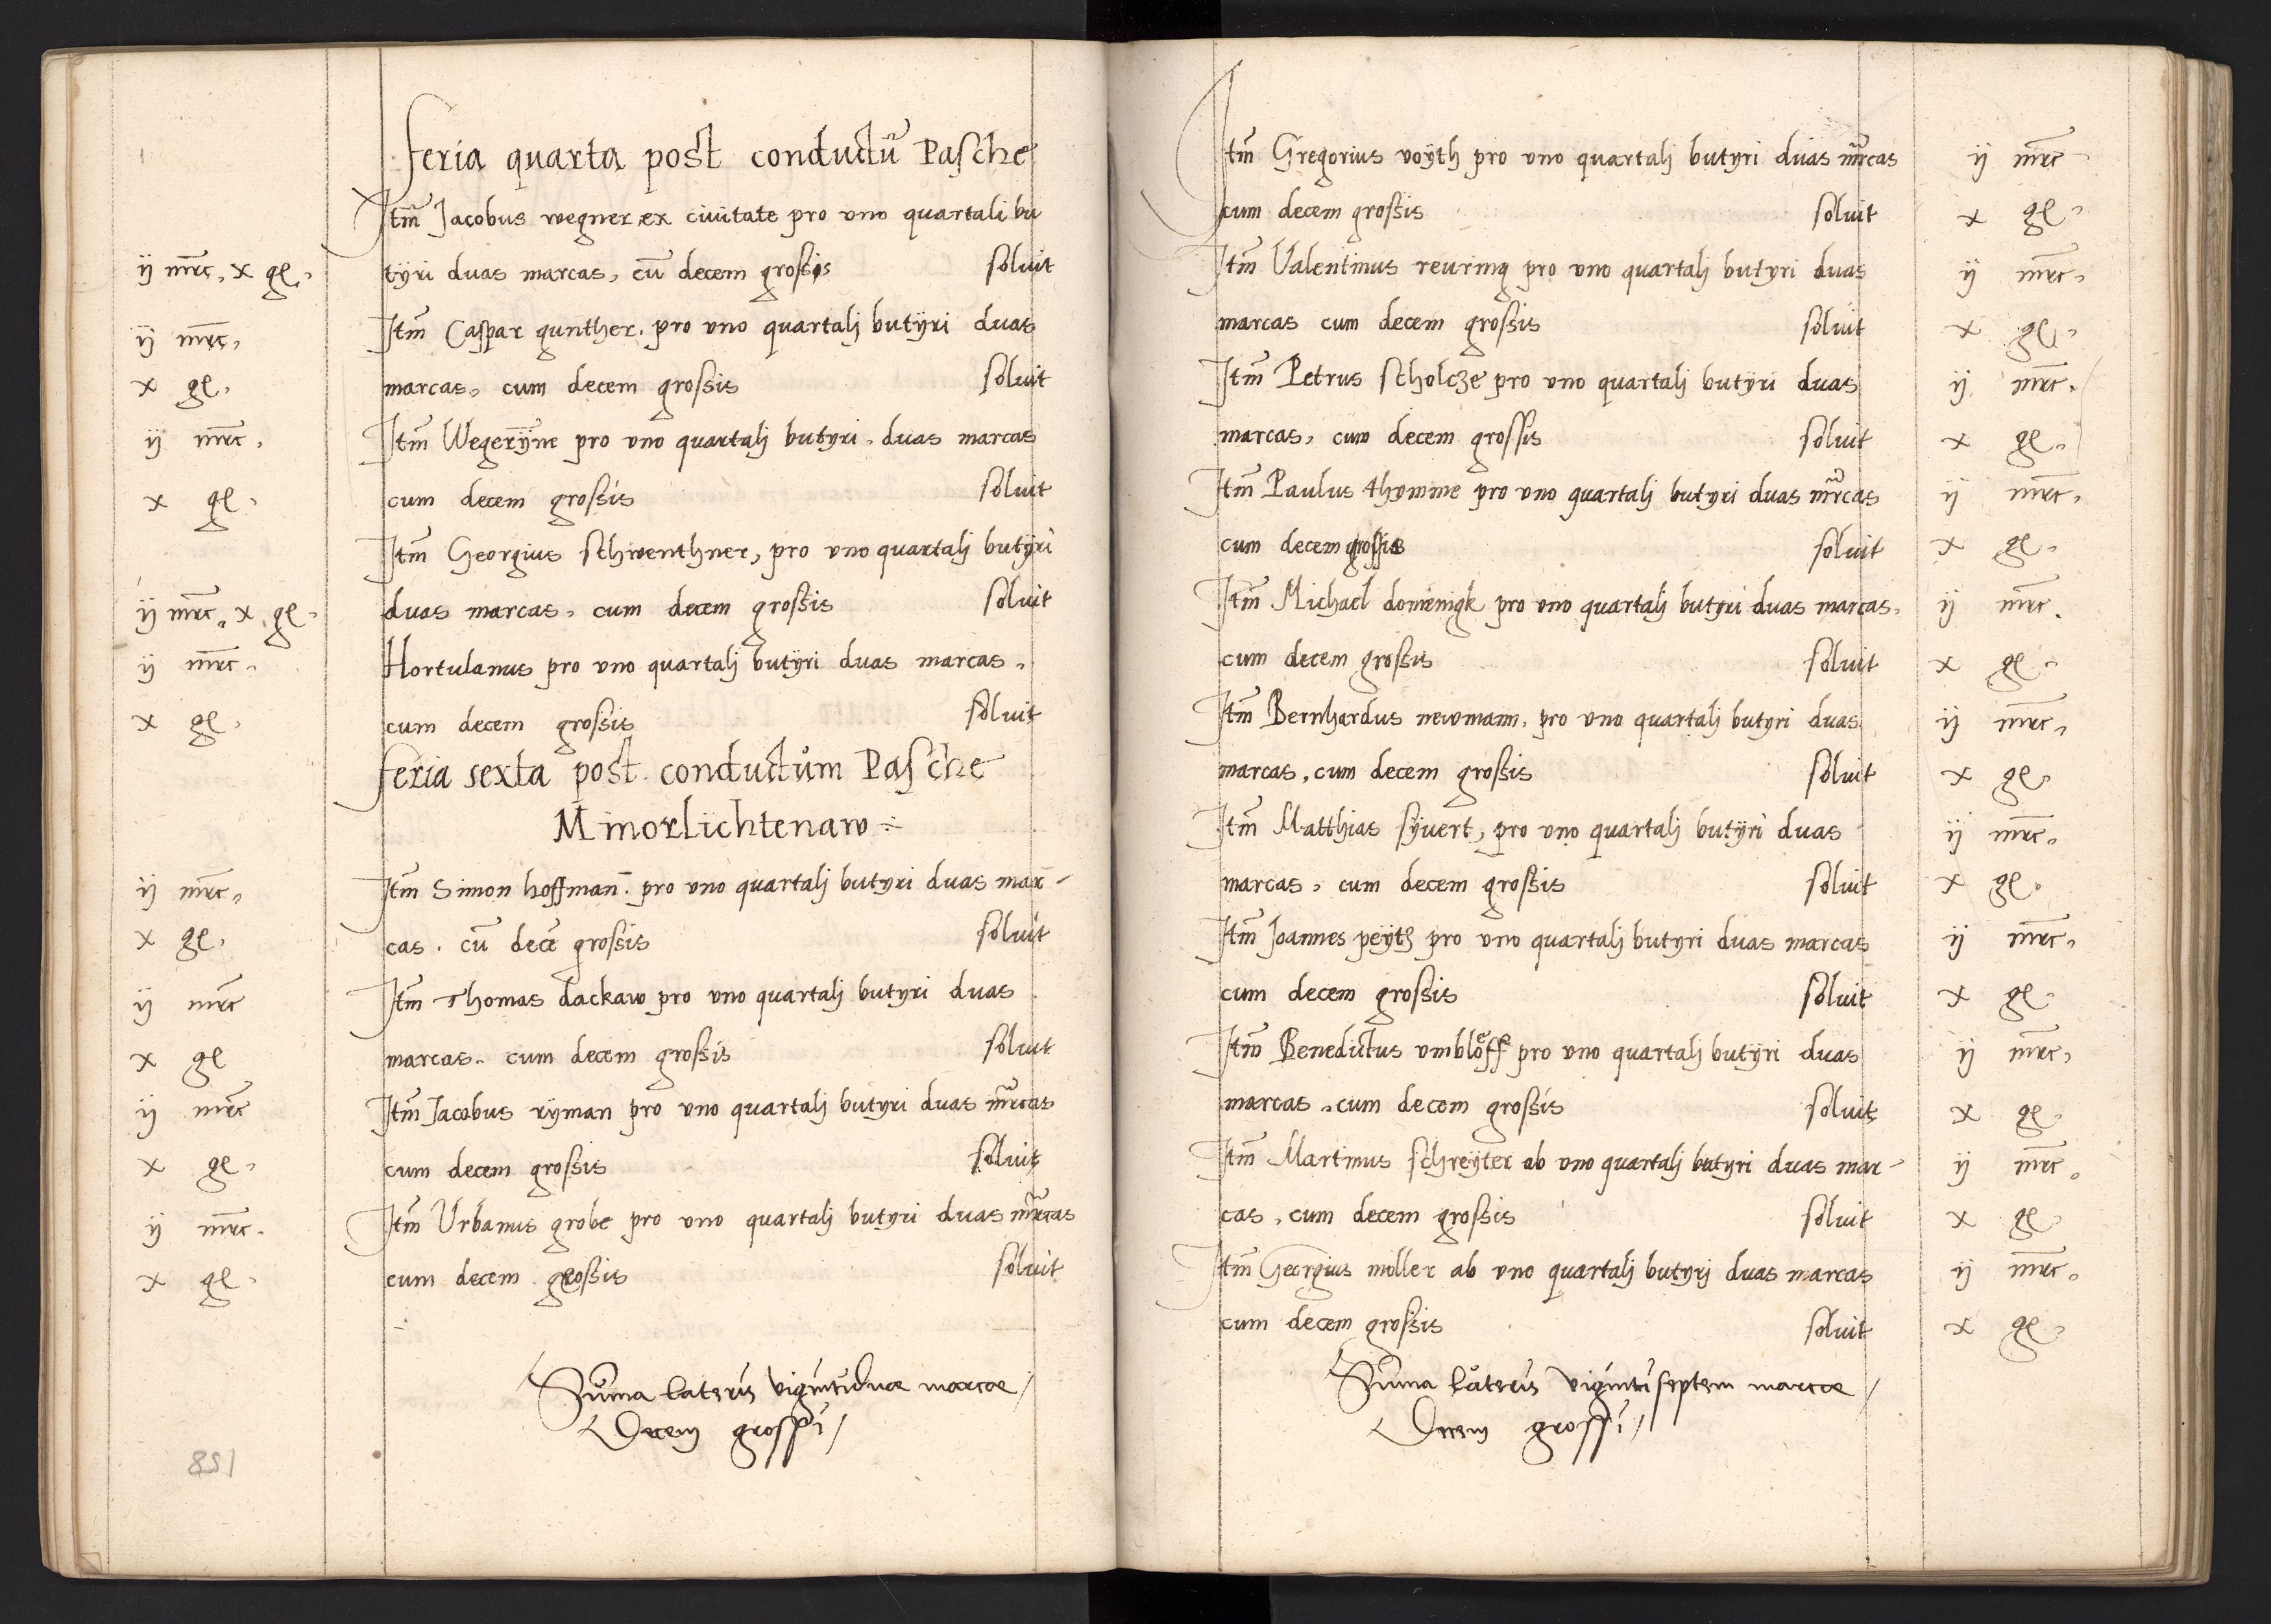 feria quarta post conductū Pasche
Itm̄ Jacobus wegner ex ciuitate pro vno quartali bu
ij mrc̄, x gl, tÿri duas marcas, cū decem grossis soluit
ij mrc̄, Itm̄ Caspar gunther, pro vno quartalj butÿri duas
x gl, marcas, cum decem grossis soluit
ij mrc̄, Itm̄ Wegerÿne pro vno quartalj butyri, duas marcas
x gl, cum decem grossis soluit
Itm̄ Georgius schwenthner, pro vno quartalj butÿri
ij mrc̄, x gl, duas marcas, cum decem grossis soluit
ij mrc̄, Hortulanus pro vno quartalj butÿri duas marcas,
x gl, cum decem grossis soluit
feria sexta post conductum Pasche
Minorlichtenaw
ij mrc̄, Itm̄ Simon hoffman̄. pro vno quartalj butyri duas mar-
x gl, cas. cū decē grossis soluit
ij mrc̄ Itm̄ Thomas dackaw pro vno quartalj butyri duas
x gl marcas. cum decem grossis soluit
ij mrc̄ Itm̄ Jacobus rÿman pro vno quartalj butyri duas mrcas
x gl, cum decem grossis soluit
ij mrc̄. Itm̄ Vrbanus grobe pro vno quartalj butyri duas mrcas
x gl, cum decem grossis soluit
Sum̄a lateris vigintiduae marcae /
Decem grossi /
158
Itm̄ Gregorius voÿth pro vno quartalj butyri duas mrcas ij mrc̄
cum decem grossis soluit x gl,
Itm̄ Valentinus reuring pro vno quartalj butyri duas ij mrc̄,
marcas cum decem grossis soluit x gl,
Itm̄ Petrus scholcze pro vno quartalj butÿri duas ij mrc̄,
marcas, cum decem grossis soluit x gl,
Itm̄ Paulus thymme pro vno quartalj butyri duas mrcas ij mrc̄,
cum decem grossis soluit x gl,
Itm̄ Michael domenigk pro vno quartalj butyri duas marcas, ij mrc̄.
cum decem grossis soluit x gl,
Itm̄ Bernhardus newmann, pro vno quartalj butyri duas ij mrc̄,
marcas, cum decem grossis soluit x gl,
Itm̄ Matthias sÿuert, pro vno quartalj butÿri duas ij mrc̄,
marcas, cum decem grossis soluit x gl,
Itm̄ Joannes peÿth pro vno quartalj butyri duas marcas ij mrc̄,
cum decem grossis soluit x gl,
Itm̄ Benedictus vmbloͤff pro vno quartalj butÿri duas ij mrc̄,
marcas, cum decem grossis soluit x gl,
Itm̄ Martinus schreÿter ab vno quartalj butyri duas mar- ij mrc̄,
cas, cum decem grossis soluit x gl,
Itm̄ Georgius moller ab vno quartalj butyrj duas marcas ij mrc̄,
cum decem grossis soluit x gl,
Sum̄a lateris vigintiseptem marcae /
Decem grossi /